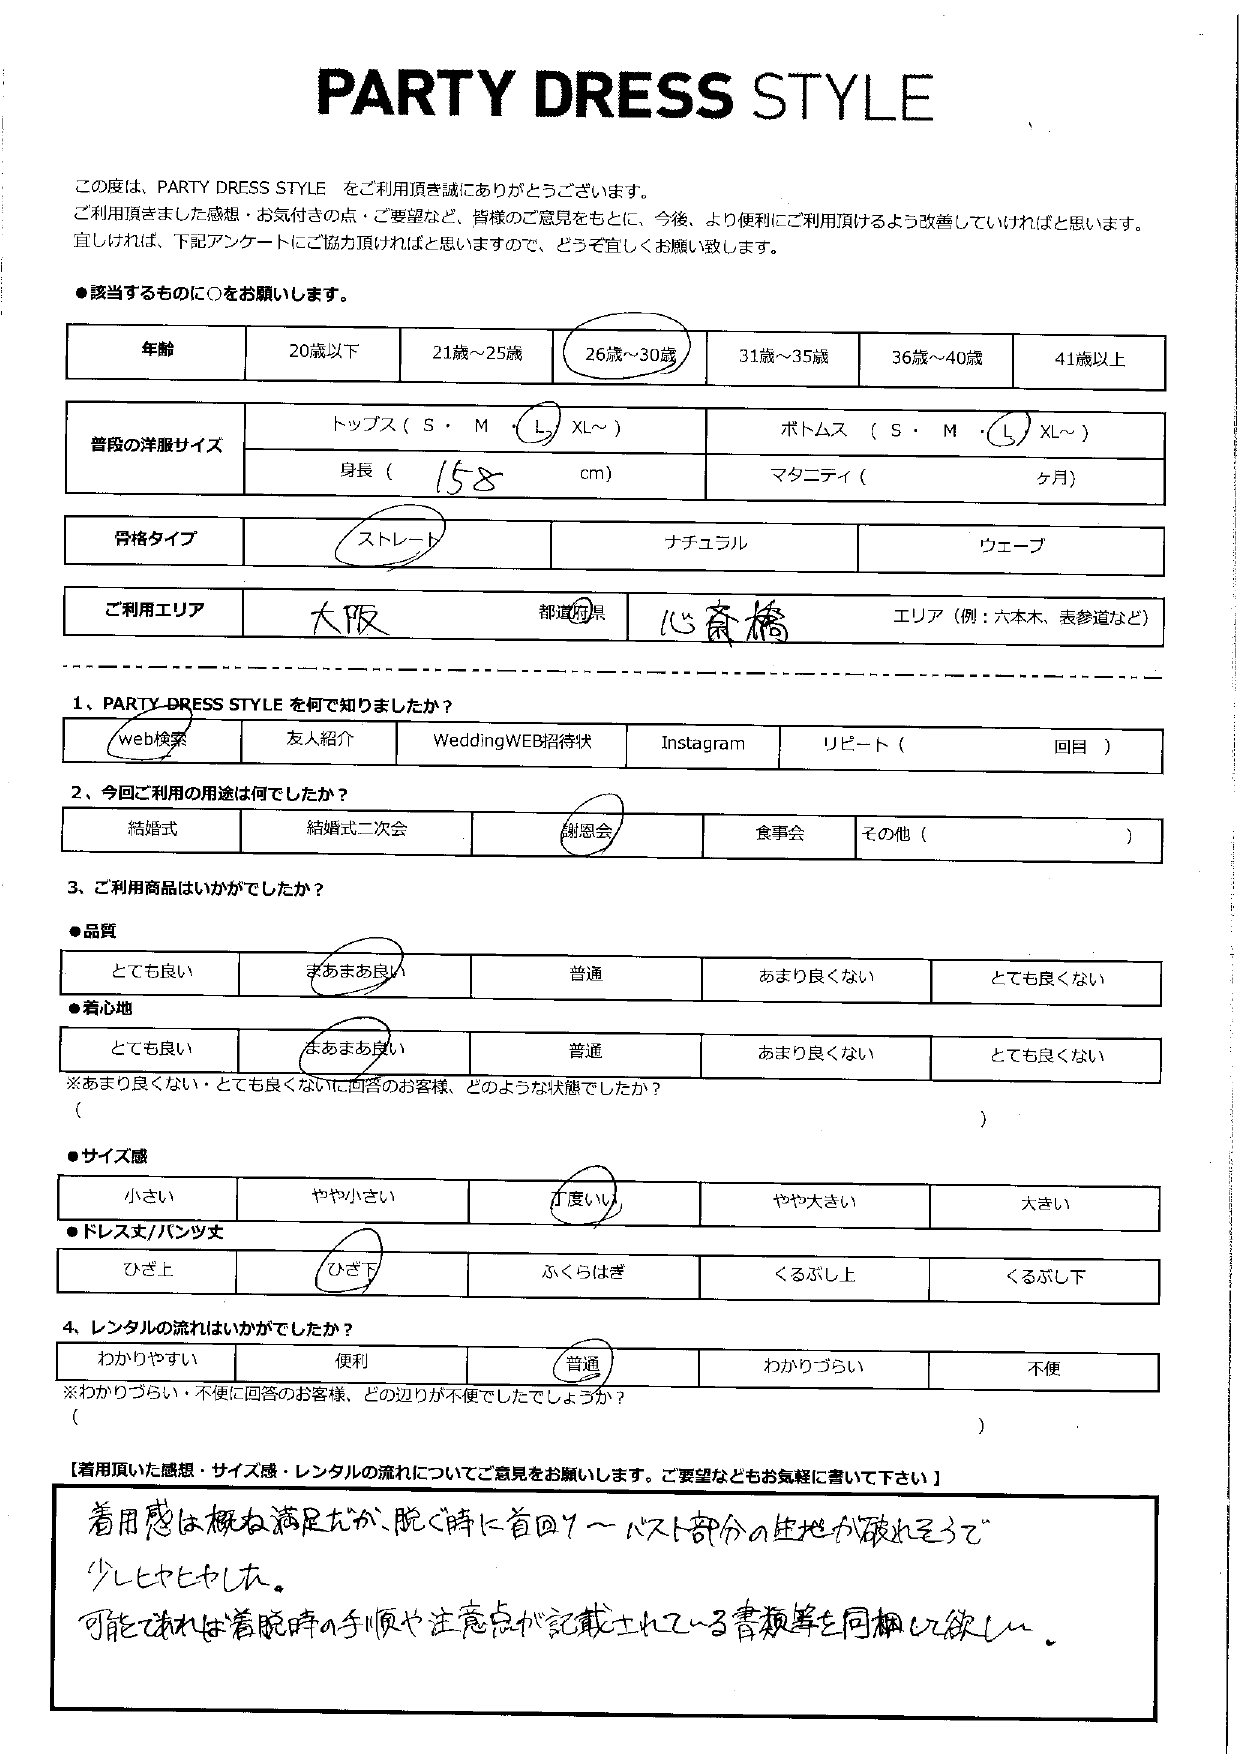 PARTY DRESS STYLE
この度は、PARTY DRESS STYLE をご利用頂き誠にありがとうございます。
ご利用頂きました感想・お気付きの点・ご要望など、皆様のご意見をもとに、今後、より便利にご利用頂けるよう改善していければと思います。
宜しければ、下記アンケートにご協力頂ければと思いますので、どうぞ宜しくお願い致します。
●該当するものに○をお願いします。
年齢 20歳以下 21歳～25歳 26歳～30歳 31歳～35歳 36歳～40歳 41歳以上
普段の洋服サイズ トップス ( S ・ M ・ L XL～ ) ボトムス ( S ・ M ・ L XL～ )
身長 ( 158 cm) マタニティ ( ヶ月)
骨格タイプ ストレート ナチュラル ウェーブ
ご利用エリア 大阪 都道府県 心斎橋 エリア（例：六本木、表参道など）
1、PARTY DRESS STYLE を何で知りましたか？
web検索 友人紹介 WeddingWEB招待状 Instagram リピート ( 回目 )
2、今回ご利用の用途は何でしたか？
結婚式 結婚式二次会 謝恩会 食事会 その他 ( )
3、ご利用商品はいかがでしたか？
●品質
とても良い まあまあ良い 普通 あまり良くない とても良くない
●着心地
とても良い まあまあ良い 普通 あまり良くない とても良くない
※あまり良くない・とても良くないに回答のお客様、どのような状態でしたか？
( )
●サイズ感
小さい やや小さい 丁度いい やや大きい 大きい
●ドレス丈/パンツ丈
ひざ上 ひざ下 ふくらはぎ くるぶし上 くるぶし下
4、レンタルの流れはいかがでしたか？
わかりやすい 便利 普通 わかりづらい 不便
※わかりづらい・不便に回答のお客様、どの辺りが不便でしたでしょうか？
( )
【着用頂いた感想・サイズ感・レンタルの流れについてご意見をお願いします。ご要望などもお気軽に書いて下さい 】
着用感は概ね満足だが、脱ぐ時に首回り～バスト部分の生地が破れそうで
少しヒヤヒヤした。
可能であれば着脱時の手順や注意点が記載されている書類等を同梱して欲しい。